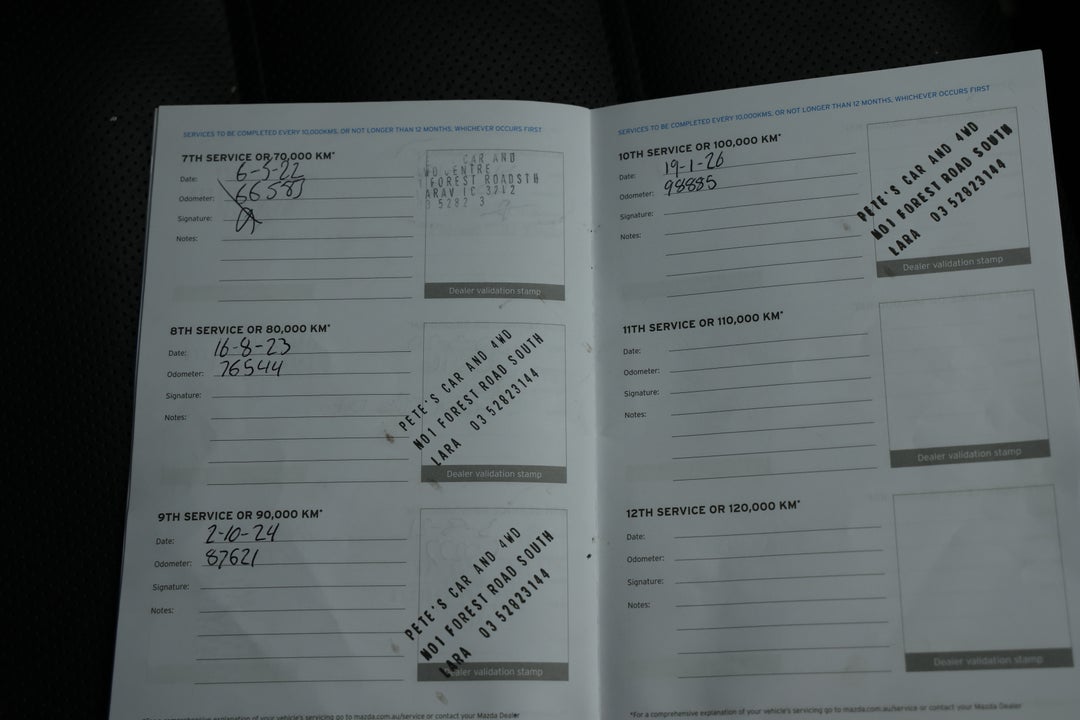 SERVICES TO BE COMPLETED EVERY 10,000KMS, OR NOT LONGER THAN 12 MONTHS, WHICHEVER OCCURS FIRST
7TH SERVICE OR 70,000 KM*
Date: 6-5-22
Odometer: 66583
Signature:
Notes:
CAR AND
WD CENTRE
1 FOREST ROADSTH
ARAV IC 3212
3 5282 3
Dealer validation stamp
8TH SERVICE OR 80,000 KM*
Date: 16-8-23
Odometer: 76544
Signature:
Notes:
PETE'S CAR AND 4WD
NO1 FOREST ROAD SOUTH
LARA 03 52823144
Dealer validation stamp
9TH SERVICE OR 90,000 KM*
Date: 2-10-24
Odometer: 87621
Signature:
Notes:
PETE'S CAR AND 4WD
NO1 FOREST ROAD SOUTH
LARA 03 52823144
Dealer validation stamp
*For a comprehensive explanation of your vehicle's servicing go to mazda.com.au/service or contact your Mazda Dealer
SERVICES TO BE COMPLETED EVERY 10,000KMS, OR NOT LONGER THAN 12 MONTHS, WHICHEVER OCCURS FIRST
10TH SERVICE OR 100,000 KM*
Date: 19-1-26
Odometer: 98885
Signature:
Notes:
PETE'S CAR AND 4WD
NO1 FOREST ROAD SOUTH
LARA 03 52823144
Dealer validation stamp
11TH SERVICE OR 110,000 KM*
Date:
Odometer:
Signature:
Notes:
Dealer validation stamp
12TH SERVICE OR 120,000 KM*
Date:
Odometer:
Signature:
Notes:
Dealer validation stamp
*For a comprehensive explanation of your vehicle's servicing go to mazda.com.au/service or contact your Mazda Dealer